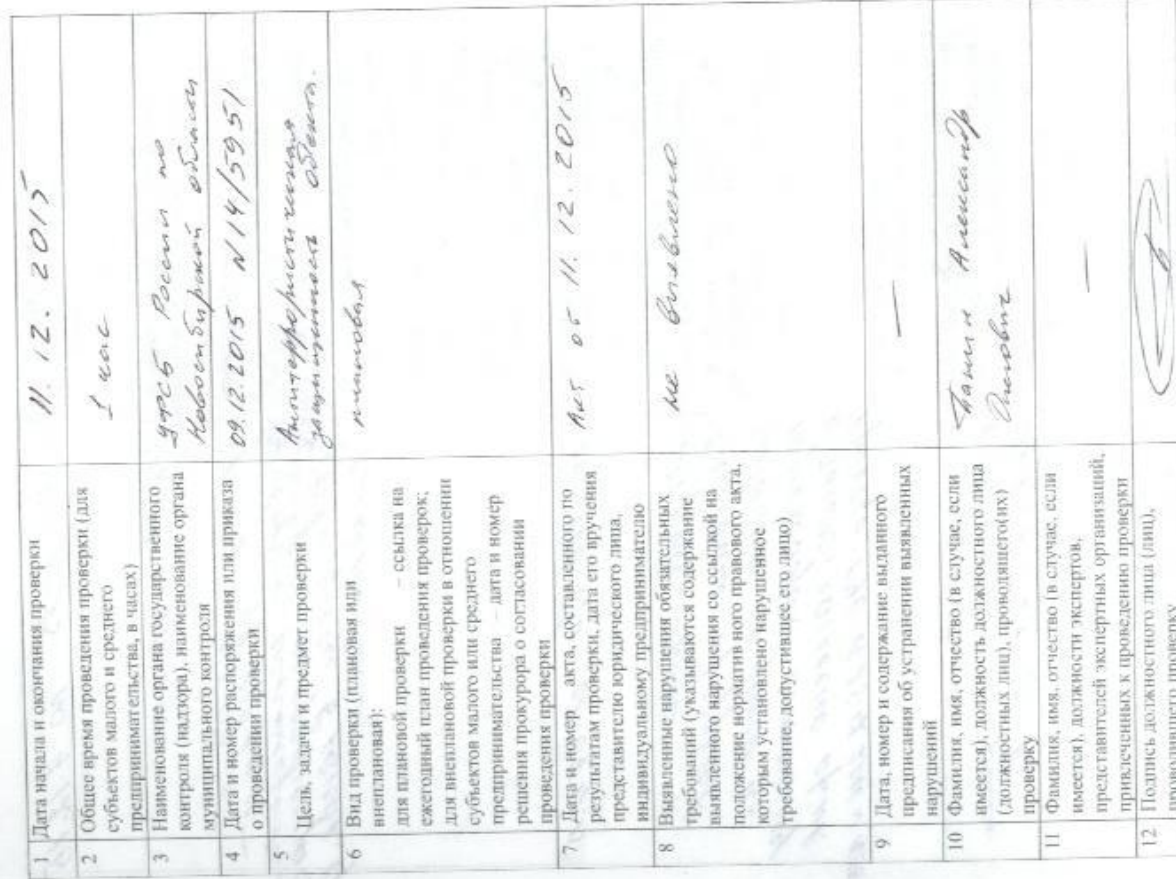 1 Дата начала и окончания проверки
11.12.2015
2 Общее время проведения проверки (для
субъектов малого и среднего
предпринимательства, в часах)
1 час
3 Наименование органа государственного
контроля (надзора), наименование органа
муниципального контроля
УФСБ России по
Новосибирской области
4 Дата и номер распоряжения или приказа
о проведении проверки
09.12.2015 N 14/5951
5 Цель, задачи и предмет проверки
Антитеррористическая
защищенность объекта.
6 Вид проверки (плановая или
внеплановая):
для плановой проверки – ссылка на
ежегодный план проведения проверок;
для внеплановой проверки в отношении
субъектов малого или среднего
предпринимательства – дата и номер
решения прокурора о согласовании
проведения проверки
плановая
7 Дата и номер акта, составленного по
результатам проверки, дата его вручения
представителю юридического лица,
индивидуальному предпринимателю
Акт от 11.12.2015
8 Выявленные нарушения обязательных
требований (указываются содержание
выявленного нарушения со ссылкой на
положение норматив ного правового акта,
которым установлено нарушенное
требование, допустившее его лицо)
не выявлено
9 Дата, номер и содержание выданного
предписания об устранении выявленных
нарушений
—
10 Фамилия, имя, отчество (в случае, если
имеется), должность должностного лица
(должностных лиц), проводящего(их)
проверку
Александр
Олегович
11 Фамилия, имя, отчество (в случае, если
имеется), должности экспертов,
представителей экспертных организаций,
привлеченных к проведению проверки
—
12 Подпись должностного лица (лиц),
проводившего проверку